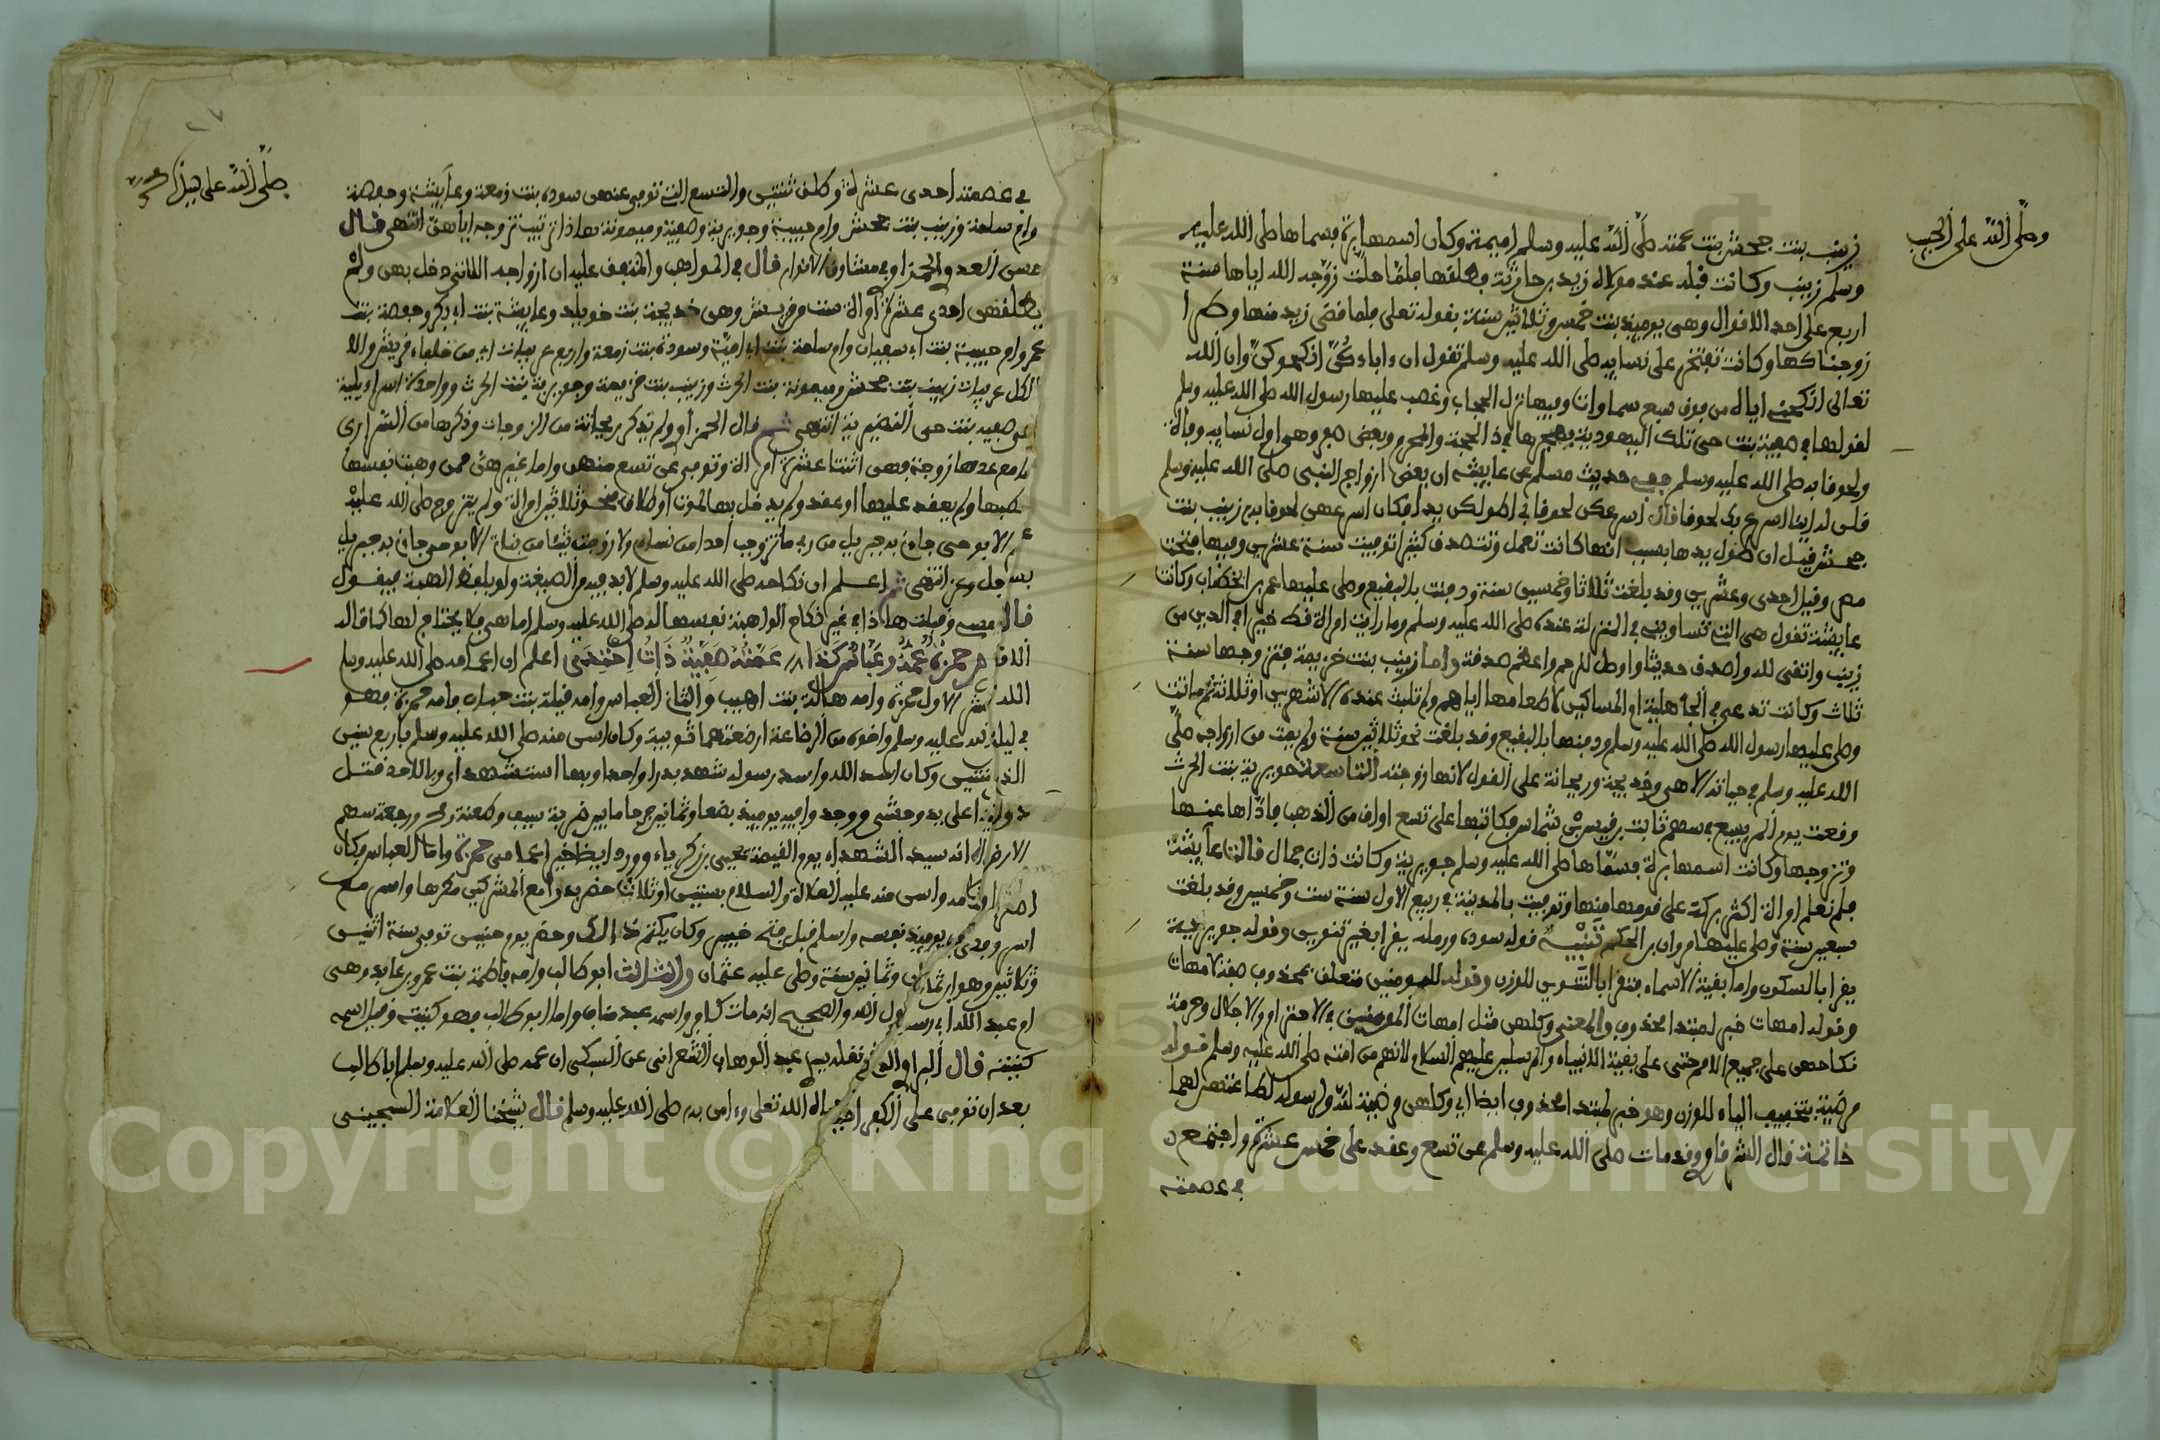 وصلى الله على الحبيب
زينب بنت جحش بنت عمته صلى الله عليه وسلم اميمة وكان اسمها برة فسماها صلى الله عليه
وسلم زينب وكانت قبله عند مولاه زيد بن حارثة فطلقها فلما حلت زوجه الله اياها سنة
اربع على احد الاقوال وهى يوميذ بنت خمس وثلاثين سنة بقوله تعلى فلما قضى زيد منها وطرا
زوجناكها وكانت تفتخر على نسايه صلى الله عليه وسلم تقول ان اباءكن انكحوكن وان الله
تعالى انكحنى اياه من فوق سبع سماوات وفيها نزل الحجاب وغضب عليها رسول الله صلى الله عليه وسلم
لقولها فى صفية بنت حيى تلك اليهودية فهجرها فى ذا الحجة والمحرم وبعض صفر وهى اول نسايه وفاة
ولحوقا به صلى الله عليه وسلم ففى حديث مسلم عن عايشة ان بعض ازواج النبى صلى الله عليه وسلم
قلن له اينا اسرع بك لحوقا قال اسرعكن لحوقا بى اطولكن يدا فكان اسرعهن لحوقا به زينب بنت
جحش قيل ان طول يدها بسبب انها كانت تعمل وتتصدق كثيرا توفيت سنة عشرين وفيها فتحت
مصر وقيل احدى وعشرين وقد بلغت ثلاثا وخمسين سنة ودفنت بالبقيع وصلى عليها عمر بن الخطاب وكانت
عايشة تقول هى التى تساوينى فى المنزلة عنده صلى الله عليه وسلم وما رايت امراة قط خيرا فى الدين من
زينب واتقى لله واصدق حديثا واوصل للرحم واعظم صدقة واما زينب بنت خزيمة فتزوجها سنة
ثلاث وكانت تدعى فى الجاهلية ام المساكين لاطعامها اياهم ولم تلبث عنده الا شهرين او ثلاثة ثم ماتت
وصلى عليها رسول الله صلى الله عليه وسلم ودفنها بالبقيع وقد بلغت نحو ثلاثين سنة ولم يمت من ازواجه صلى
الله عليه وسلم فى حياته الا هى وخديجة وريحانة على القول لانها زوجته التاسعة جويرية بنت الحرث
وقعت يوم المريسيع فى سهم ثابت بن قيس بن شماس فكاتبها على تسع اواق من الذهب فاداها عنها
وتزوجها وكانت اسمها برة فسماها صلى الله عليه وسلم جويرية وكانت ذات جمال قالت عايشة
فلم نعلم امراة اكثر بركة على قومها منها وتوفيت بالمدينة فى ربيع الاول سنة ست وخمسين وقد بلغت
سبعين سنة وصلى عليها مروان بن الحكم تنبيه قوله سوده ورمله يقرا بغير تنوين وقوله جويرية
يقرا بالسكون واما بقية الاسماء فتقرا بالتنوين للوزن وقوله للمومنين متعلق بمحذوف صفة لامهات
وقوله امهات خبر لمبتدا محذوف والمعنى وكلهن مثل امهات المومنين فى الاحترام والاجلال وحرمة
نكاحهن على جميع الامم حتى على بقية الانبياء والمرسلين عليهم السلام لانهم من امته صلى الله عليه وسلم قوله
مرضية بتخفيف الياء للوزن وهو خبر لمبتدا محذوف ايضا اى وكلهن مرضية لله ولرسوله
خاتمة قال الشرقاوى وقد مات صلى الله عليه وسلم عن تسع وعقد على خمس عشرة واجتمعن
فى عصمته
صلى الله على نبيك
فى عصمته احدى عشرة وطلق ثنتين والتسع التى توفى عنهن سودة بنت زمعة وعايشة وحفصة
وام سلمة وزينب بنت جحش وام حبيبة وجويرية وصفية وميمونة هاذا ترتيب تزوجه اياهن انتهى قال
العدوى الحمزاوى فى مشارق الانوار قال فى المواهب والمتفق عليه ان ازواجه اللاتى دخل بهن ولم
يطلقهن احدى عشرة امراة ست من قريش وهن خديجة بنت خويلد وعايشة بنت ابى بكر وحفصة بنت
عمر وام حبيبة بنت ابى سفيان وام سلمة بنت ابى امية وسودة بنت زمعة واربع عربيات اى من حلفاء قريش والا
فالكل عربيات زينب بنت جحش وميمونة بنت الحرث وزينب بنت خزيمة وجويرية بنت الحرث وواحدة اسراءيلية
وهى صفية بنت حيى النضيرية انتهى ثم قال الحمزاوى ولم يذكر ريحانة من الزوجات وذكرها من السرارى
فمع عدها زوجة فهن اثنتا عشرة امراة وتوفى عن تسع منهن واما غيرهن ممن وهبت نفسها
او خطبها ولم يعقد عليها او عقد ولم يدخل بها لموت او طلاق فنحو ثلاثين امراة ولم يتزوج صلى الله عليه
وسلم الا بوحى جاءه به جبريل من ربه ما تزوجت احدا من نساى ولا زوجت شيئا من بناتى الا بوحى جاءنى به جبريل
عن ربى عز وجل انتهى ثم اعلم ان نكاحه صلى الله عليه وسلم لابد فيه من الصيغة ولو بلفظ الهبة فيقول
قال فيه وقبلت هاذا فى غير نكاح الواهبة نفسها له صلى الله عليه وسلم اما هى فلا يحتاج لها كما قاله
حمزة عمه وعباس كذا عمته صفية ذات احتذى اعلم ان اعمامه صلى الله عليه وسلم
الاول حمزة وامه هالة بنت اهيب والثانى العباس وامه فتيلة بنت حباب واما حمزة فهو
الله عليه وسلم واخوه من الرضاعة ارضعتهما ثويبة وكان اسن منه صلى الله عليه وسلم باربع سنين
وكان اسد الله واسد رسوله شهد بدرا واحدا وبها استشهد قتل
على يد وحشى ووجد فيه يوميذ بضعا وثمانين جرحا ما بين ضربة سيف وطعنة رمح ورمية سهم
انه سيد الشهداء يوم القيمة يحيى بن زكرياء وورد ايضا خير اعمامى حمزة واما العباس وكان
واسن منه عليه الصلاة والسلام بسنتين او ثلاث حضر بدرا مع المشركين مكرها واسر مع
من اسر وفدى يوميذ نفسه واسلم قبل فتح خيبر وكان يكتم ذالك وحضر يوم حنين توفى سنة اثنين
وثلاثين وهو ابن ثمان وثمانين سنة وصلى عليه عثمان والثالث ابو طالب وامه فاطمة بنت عمرو بن عايذ وهى
ام عبد الله ابى رسول الله والصحيح انه مات كافرا واسمه عبد مناف واما ابو طالب فهو كنيته وقيل اسمه
كنيته قال البراوى ونقل سيدى عبد الوهاب الشعرانى عن السبكى ان عمه صلى الله عليه وسلم ابا طالب
بعد ان توفى على الكفر احياه الله تعلى وءامن به صلى الله عليه وسلم قال شيخنا العلامة السجينى
Copyright © King Saud University